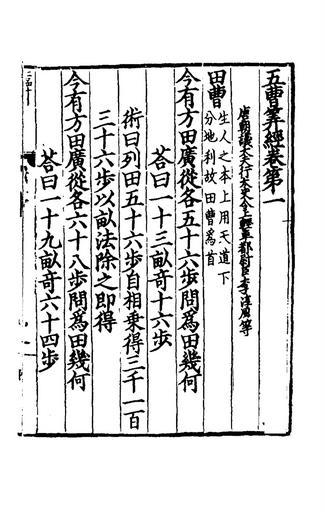 五曹筭經卷第一
唐朝議大夫行太史令上輕車都尉臣李淳風等
田曹 生人之本上用天道下
分地利故田曹爲首
今有方田廣從各五十六步問爲田幾何
荅曰一十三畝奇十六步
術曰列田五十六步自相乗得三千一百
三十六步以畝法除之即得
今有方田廣從各六十八步問爲田幾何
荅曰一十九畝奇六十四步